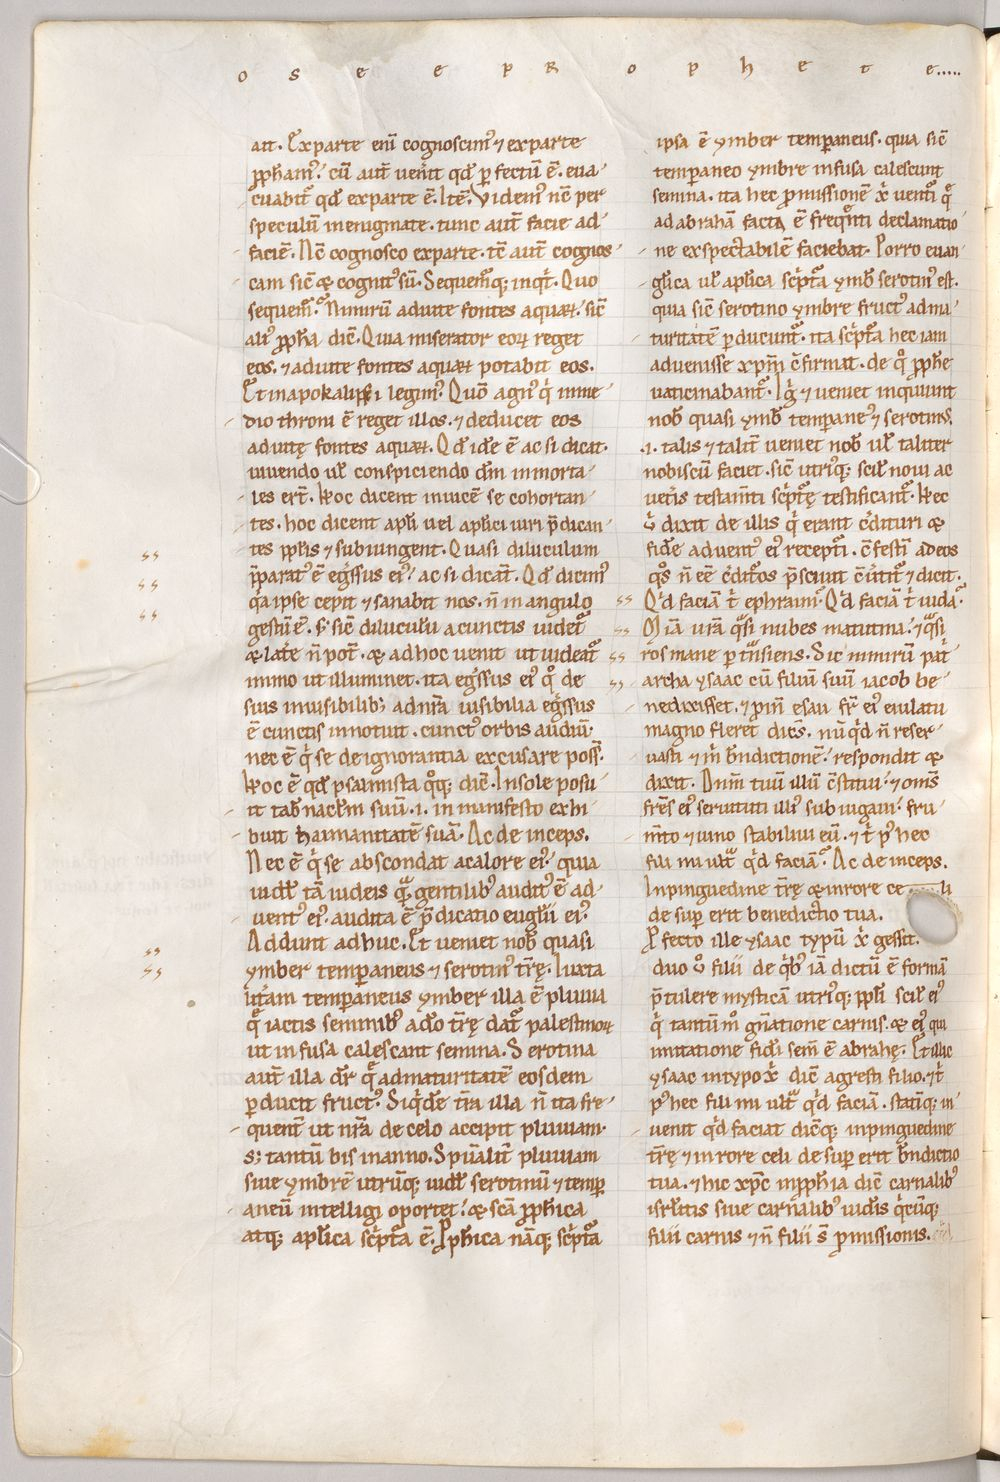 o s e e p R o p h e t e .....
ait. Ex parte eni̅ cognoscim᷒ ⁊ ex parte
pp̅ham᷒. cu̅ aut̅ uen̅it qd̅ perfectu̅ e̅. eua-
cuabit᷒ qd̅ ex parte e̅. Ite̅. Videm᷒ nc̅ per
speculu̅ in enigmate. tunc aut̅ facie ad
facie̅. Nc̅ cognosco ex parte. tc̅ aut̅ cognos-
cam sic̅ & cognit᷒ su̅. Sequem̅q; inq̅t. Quo
sequem̅. Nimiru̅ ad uite fontes aquaꝝ. sic̅
ali᷒ pp̅ha dic̅. Quia miserator eoꝝ reget
eos. ⁊ ad uite fontes aquaꝝ potabit eos.
Et in apokalipsi legim᷒. Quo̅ agn᷒ q̅ in me-
dio throni e̅ reget illos. ⁊ deducet eos
ad uitę fontes aquaꝝ. Qd̅ ide̅ e̅ ac si dicat.
uiuendo ul̅ conspiciendo dm̅ inmorta-
les ert̅. Hoc dicent inuice̅ se cohortan-
tes. hoc dicent apl̅i uel apl̅ici uiri p̅dican-
tes pp̅lis ⁊ subiungent. Quasi diluculum
p̅parat᷒ e̅ eg̅ssus ei᷒. ac si dicat̅. Qd̅ dicim᷒
q̅a ipse cepit ⁊ sanabit nos. n̅ in angulo
gestu̅ e̅. S; sic̅ diluculu̅ a cunctis uidet᷒
& late̅ n̅ pot̅. & ad hoc uenit ut uideat᷒
immo ut illuminet. ita eg̅ssus ei᷒ q̊ de
suis inuisibilib; ad nr̅a uisibilia eg̅ssus
e̅ cunctis innotuit. cunct᷒ orbis audiu̅.
nec e̅ q̅ se de ignorantia excusare poss̅.
Hoc e̅ qd̅ psalmista q̊q; dic̅. In sole posu-
it tab̅nacl̅m suu̅. .i. in manifesto exhi-
buit humanitate̅ sua̅. Ac deinceps.
Nec e̅ q̅ se abscondat a calore ei᷒. quia
uidl̅ ta̅ iudeis qua̅ gentilib᷒ audit᷒ e̅ ad-
uent᷒ ei᷒. audita e̅ p̅dicatio eug̅lii ei᷒.
Addunt adhuc. Et ueniet nob̅ quasi
ymber temp̅aneus ⁊ serotin᷒ tr̅ę. Iuxta
lit̅am temp̅aneus ymber illa e̅ pluuia
q̅ iactis seminib᷒ a do̅ tr̅ę dat᷒ palestinoꝝ
ut infusa calescant semina. Serotina
aut̅ illa dr̅ q̅ ad maturitate̅ eosdem
p̲ducit fruct᷒. Siq̅de̅ tr̅a illa n̅ ita fre-
quent̅ ut nr̅a de celo accipit pluuiam.
s; tantu̅ bis in anno. Sp̅ualit̅ pluuiam
siue ymbre̅ utru̅q; uidl̅ serotinu̅ ⁊ temp̲-
aneu̅ intelligi oportet. & sc̅a pp̅hica
atq; apl̅ica sc̅pt᷒a e̅. Pp̅hica na̅q; sc̅pt᷒a
ipsa e̅ ymber temp̅aneus. quia sic̅
temp̅aneo ymbre infusa calescunt
semina. ita hec p̲missione̅ xp̅i uent̅i q̅
ad abraha̅ facta e̅ freq̅nti declamatio-
ne exspectabile̅ faciebat. Porro euan-
gl̅ica ul̅ apl̅ica sc̅pt᷒a ymb̅ serotin᷒ est.
quia sic̅ serotino ymbre fruct᷒ ad ma-
turitate̅ p̲ducunt᷒. ita sc̅pt᷒a hec iam
aduenisse xp̅m c̅firmat. de q̊ pp̅he
uaticinabant᷒. Ig̅ ⁊ ueniet inquiunt
nob̅ quasi ymb̅ temp̅ane᷒ ⁊ serotinus.
.i. talis ⁊ talit̅ ueniet nob̅ ul̅ taliter
nobiscu̅ faciet. sic̅ utriq; scil̅ noui ac
uet̅is testam̅ti sc̅ptę testificant᷒. Hec
u̅ dixit de illis q̅ erant c̅dituri &
fide̅ aduent᷒ ei᷒ recept̅i. c̅festi̅ ad eos
q̊s n̅ ee̅ c̅dit᷒os p̅sciuit c̅u̅tit᷒ ⁊ dicit.
Qd̅ facia̅ t̅ ephraim. Qd̅ facia̅ t̅ iuda.
Mia̅ ur̅a q̅si nubes matutina. ⁊ q̅si
ros mane p̲t̅nsiens. Sic nimiru̅ pat̅-
archa ysaac cu̅ filiu̅ suu̅ iacob be-
nedixisset. ⁊ p̲im̅ esau fr̅ ei᷒ eiulatu
magno fleret dic̅s. nu̅qd̅ n̅ reser-
uasti ⁊ m̅ b̅ndictione̅. respondit &
dixit. Dn̅m tuu̅ illu̅ c̅stitui. ⁊ om̅s
fr̅es ei᷒ seruituti illi᷒ subiugaui. fru-
m̅to ⁊ uino stabiliui eu̅. ⁊ t̅ p᷒ hec
fili mi ult᷒ qd̅ facia̅. Ac deinceps.
In pinguedine tr̅ę & in rore ce li
desup̲ erit benedictio tua.
P̲fecto ille ysaac typu̅ xp̅i gessit.
duo u̅ filii de q̅b᷒ ia̅ dictu̅ e̅ forma̅
p̅tulere mystica̅ utriq; pp̅li scil̅ ei᷒
q̅ tantu̅m̊ gn̅atione carnis. & ei᷒ qui
imitatione fidei sem̅ e̅ abrahę. Et illic
ysaac in typo xp̅i dic̅ agresti filio. ⁊ t̅
p᷒ hec fili mi ult᷒ qd̅ facia̅. statu̅q; in-
uenit qd̅ faciat dic̅q; in pinguedine
tr̅ę ⁊ in rore celi desup̲ erit b̅ndictio
tua. ⁊ hic xp̅c in pp̅hia dic̅ carnalib᷒
isrl̅itis siue carnalib᷒ iudeis q̅cu̅q;
filii carnis ⁊ n̅ filii s̅ p̲missionis.